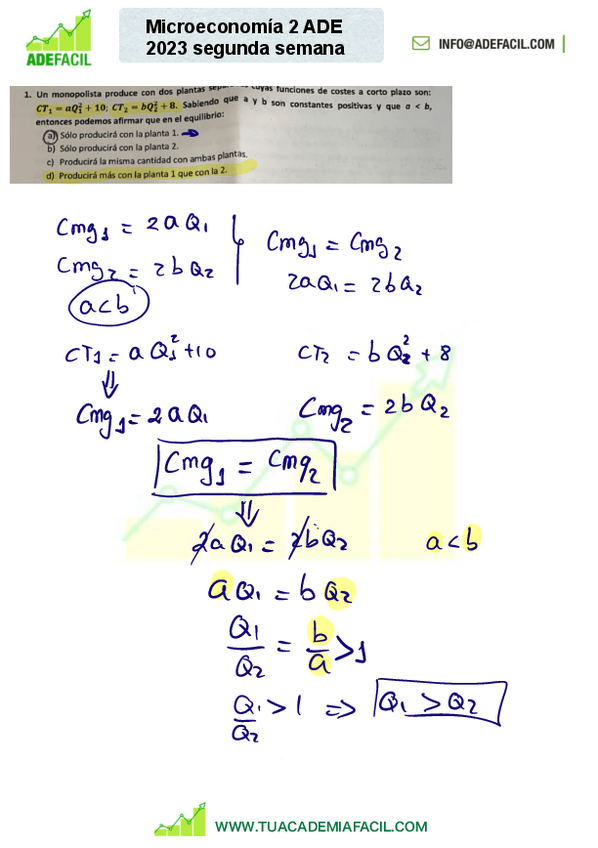 ADEFACIL
Microeconomía 2 ADE
2023 segunda semana
INFO@ADEFACIL.COM
1. Un monopolista produce con dos plantas cuyas funciones de costes a corto plazo son:
CT₁ = aQ₁² + 10; CT₂ = bQ₂² + 8. Sabiendo que a y b son constantes positivas y que a < b,
entonces podemos afirmar que en el equilibrio:
a) Sólo producirá con la planta 1.
b) Sólo producirá con la planta 2.
c) Producirá la misma cantidad con ambas plantas.
d) Producirá más con la planta 1 que con la 2.
Cmg₁ = 2aQ₁
Cmg₂ = 2bQ₂
a<b
Cmg₁ = Cmg₂
2aQ₁ = 2bQ₂
CT₁ = aQ₁² + 10
CT₂ = bQ₂² + 8
⇓
Cmg₁ = 2aQ₁
Cmg₂ = 2bQ₂
Cmg₁ = Cmg₂
⇓
2aQ₁ = 2bQ₂
a<b
aQ₁ = bQ₂
Q₁/Q₂ = b/a > 1
Q₁/Q₂ > 1 ⇒ Q₁ > Q₂
WWW.TUACADEMIAFACIL.COM